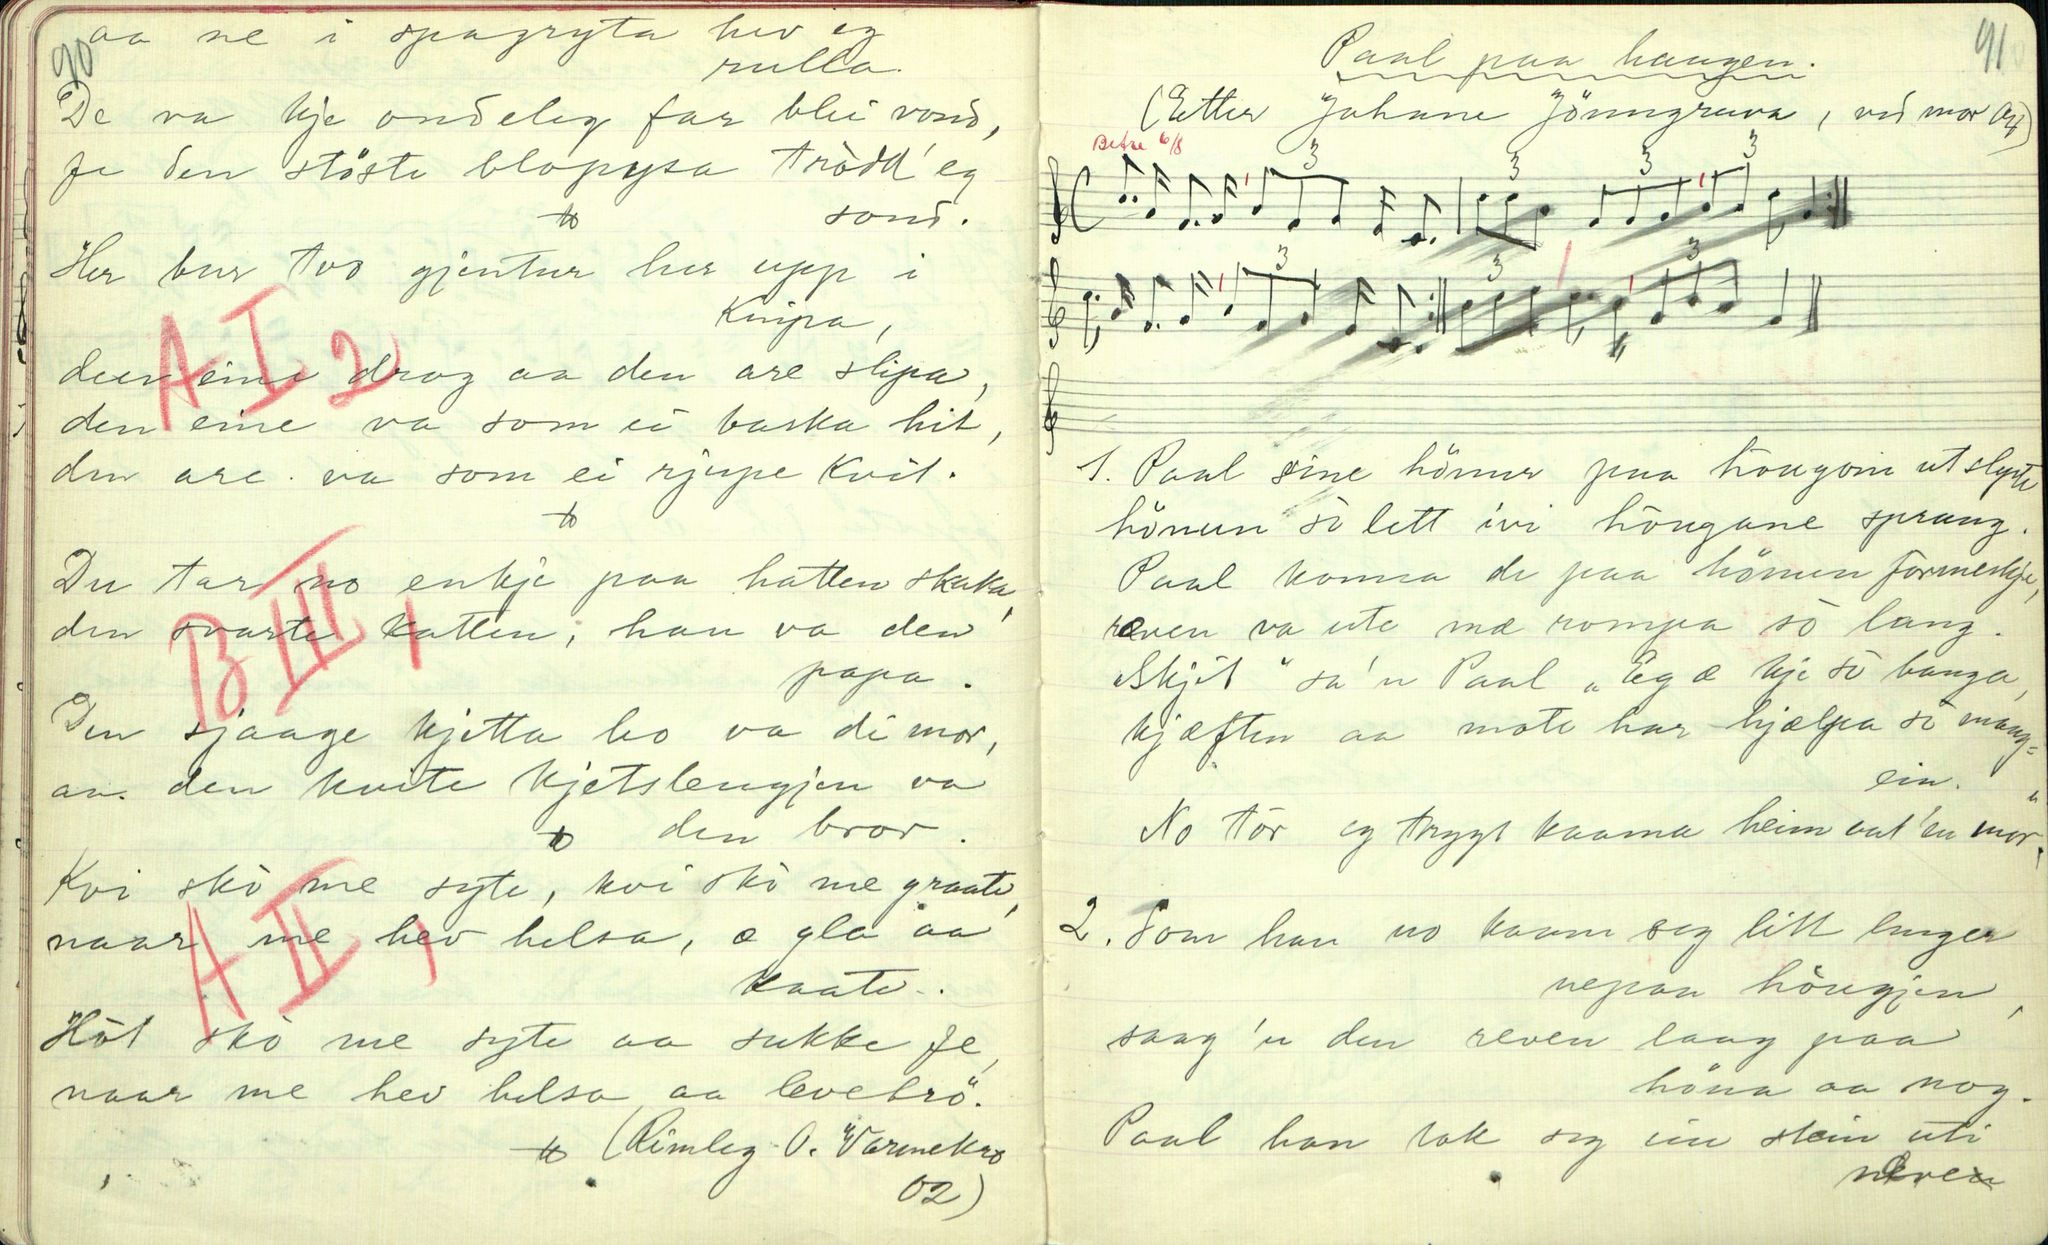 90
aa ne i spagryta hev eg
rulla.
De va kje ondeleg far blei vond,
fe den stöste blopysa trödd' eg
sond.
Her bur tvo gjentur her upp i
Knipa,
den eine drog aa den are slipa,
den eine va som ei baska hit,
den are va som ei rjupe kvit.
A I 2
Du tar no enkje paa hatten skaka,
den svarte katten, han va den
papa.
Den sjaage kjetta ho va di mor,
aa den kvite kjetslengjen va
den bror.
B III 1
Kvi skò me syte, kvi skò me graate,
naar me hev helsa, æ gla aa
kaate.
Höt skò me syte aa sukke fe,
naar me hev helsa aa levebrö.
A II 1
(Rimleg O. Varmekro
02)
91
Paal paa haugen.
(Etter Johane Jönngruva, ved mor 04)
Betre 6/8
3 3 3 3
3 3 3
1. Paal sine hönur paa hougom utslepte
hönun sò lett ivi hougane sprang.
Paal konna de paa hönun formerkje,
ræven va ute mæ rompa sò lang.
Skjit" sa'n Paal „Eg æ kje sò banga,
kjæften aa mote har hjælpa sò mang=
ein.
No tör eg trygt kaama heim aat'en mor."
2. Som han no kaam seg litt lenger
nepaa hòugjen,
saag'n den reven laag paa
höna aa nog.
Paal han tok seg ein stein uti
neven